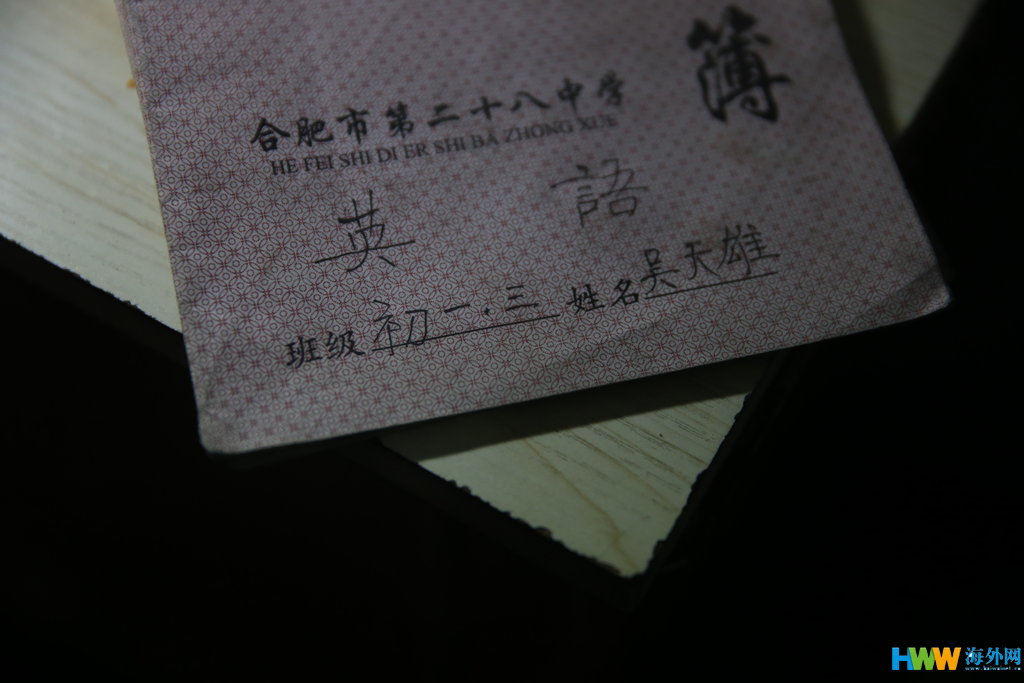 簿
合肥市第二十八中学
HE FEI SHI DI ER SHI BA ZHONG XUE
英語
班级 初一.三 姓名 吴天雄
HWW 海外网
www.haiwainet.cn